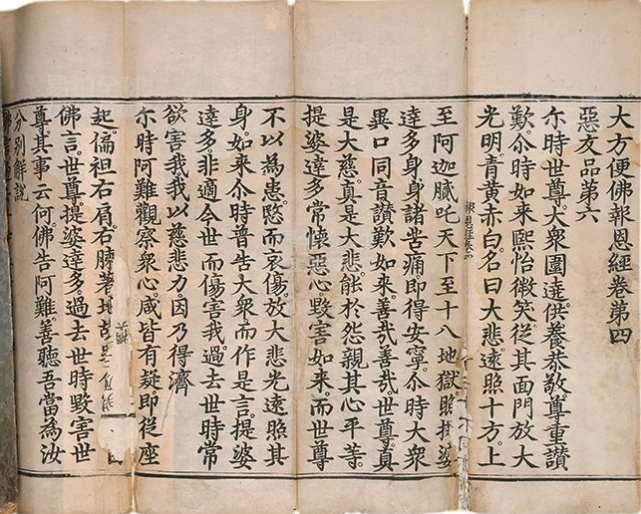 大方便佛報恩經卷第四
惡友品第六
尒時世尊。大衆圍遶。供養恭敬。尊重讃
歎。尒時如来熈怡微笑。從其面門放大
光明。青黄赤白。名曰大悲。遠照十方。上
至阿迦膩吒天下至十八地獄照提婆
達多身身諸苦痛即得安寧。尒時大衆
異口同音讃歎如来。善哉善哉。世尊真
是大慈。真是大悲。能於怨親其心平等。
提婆達多常懷惡心毀害如来。而世尊
不以為患。愍而哀傷。放大悲光遠照其
身。如来尒時普告大衆而作是言。提婆
達多非適今世而傷害我。過去世時常
欲害我我以慈悲力。因乃得濟
尒時阿難觀察衆心。咸皆有疑即從座
起。偏袒右肩。右膝著地
佛言。世尊。提婆達多。過去世時毀害世
尊。其事云何。佛告阿難。善聽吾當為汝
分别解說